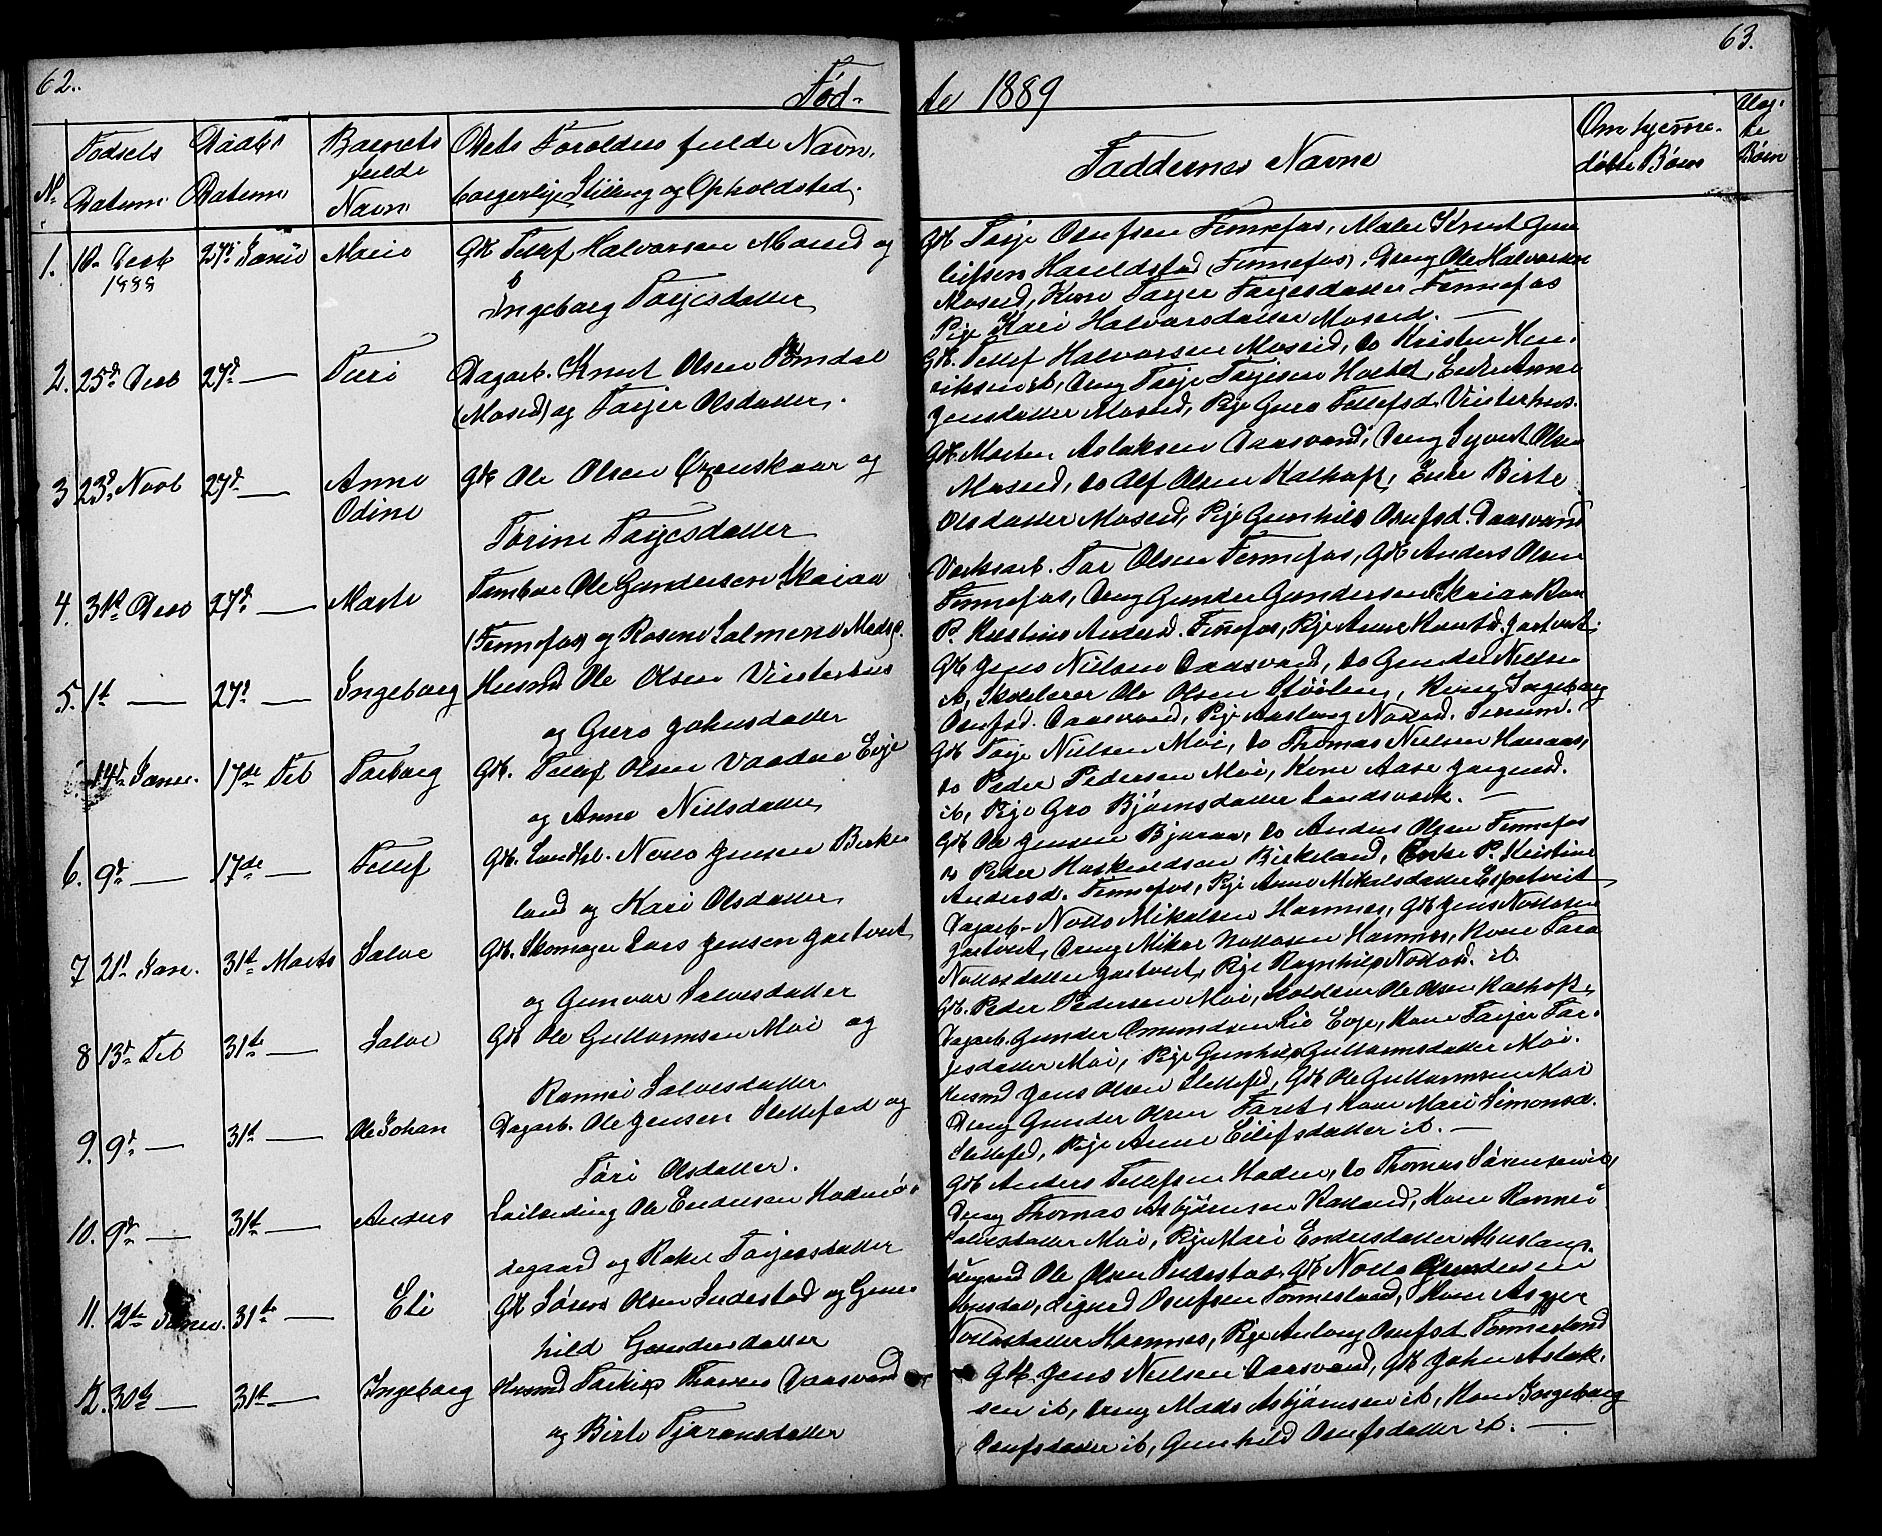 62.
63.
Fød-
te 1889
N.
Fødsels
Datum
Daabs
Datum
Barnets
fulde
Navn
Dets Foreldres fulde Navn,
borgerlige Stilling og Opholdsted.
Faddernes Navne
Om hjemme-
døbte Børn
Uæg-
te
Børn
1. 18de Decb 27de Janu Marie Gbr Tellef Halvorsen Mosed og
1888
Ingeborg Tarjesdatter
Gbr Tarje Osufsen Fennefos, Maler Knut Gun
leifsen Hareldstad (Fennefos), Dreng Ole Halvorsen
Mosed, Kone Tarjer Tarjesdatter Fennefos
Pige Kari Halvorsdatter Mosed.
2. 25de Decb 27de — Turi Dagarb. Knut Olsen Omdal
(Mosed) og Tarjer Olsdatter.
Gbr. Tellef Halvorsen Mosed, do Kristen Hen-
riksen ib, Dreng Tarje Tarjesen Hodt, Enke Anne
Jensdatter Mosed, Pige Guro Tellefsd. Vinterhus.
3 23de Novb 27de — Anne
Odine
Gbr Ole Olsen Øgenskaar og
Torine Tarjesdatter
Gbr. Morten Aslaksen Daasvand, Dreng Syvert Olsen
Mosed, do Alf Olsen Kalhoft, Enke Birte
Olsdatter Mosed, Pige Gunhild Osufsd. Daasvand
4. 31te Decb 27de — Marte Tømber Ole Gundersen Skaiaa
(Fennefos) og Rosine Salmene Madsd.
Verksarb. Tor Olsen Fennefos, Gbr Anders Olsen
Fennefos, Dreng Gunder Gundersen Skaiaa Kone
P. Kristine Andersd. Fennefos, Pige Anne Knutsd. Gautvet.
5. 1te — 27de — Ingeborg Husmd Ole Olsen Vinterhus
og Guro Johnsdatter
Gbr Jens Nielsen Daasvand, do Gunder Nielsen
ib, Skolelærer Ole Olsen Støilen, Kone Ingeborg
Osufsd. Daasvand, Pige Aaslaug
14de Janu. 17de Feb Torborg Gbr. Tellef Olsen Vaadne Evje
og Anne Nielsdatter
Gbr Tarje Nielsen Moi, do Thomas Nielsen Hanaas,
do Peder Pedersen Moi, Kone Aase Jørgensd.
ib, Pige Gro Bjørnsdatter Landsverk.
6. 9de — 17de — Tellef Gbr. Landhl. Neri Jensen Birke
land og Kari Olsdatter
Gbr Ole Jensen Bjoraa, do Anders Olsen Fennefos
do Peder Haskeldsen Birkeland, Enke P. Kristine
Andersd. Fennefos, Pige Anne Mikalsdatter Espetveit
7 21de Janu. 31te Marts Salve Gbr. Skomager Lars Jensen Gautvet
og Gunvor Salvesdatter
Dagarb. Notto Mikalsen Hannes, Gbr Jens Nottosen
Gautvet, Dreng Mikal Nottosen Hannes, Kone Tora
Nottosdatter Gautvet, Pige Ragnhild Nottosd. ib
8 13de Feb 31te — Salve Gbr Ole Guttormsen Moi og
Rannei Salvesdatter
Gbr. Peder Pedersen Moi, Ole Olsen Kalhoft,
Dagarb. Gunder Omundsen Lie Evje, Kone Tarjer Tar-
jesdatter Moi, Pige Gunhild Guttormsdatter Moi.
9. 9de — 31te — Ole Johan Dagarb. Ole Jensen Slettefed og
Tori Olsdatter.
Husmd Jens Olsen Slettefed, Gbr Ole Guttormsen Moi
Dreng Gunder Olsen Faret, Kone Mari Simonsd.
Slettefed, Pige Anne Eilifsdatter ib.
10. 9de — 31te — Anders Leilænding Ole Endresen Hodne
degaard og Rakel Tarjeisdatter
Gbr Anders Tellefsen Hodne, do Thomas Sørensen ib,
Dreng Thomas Asbjørnsen Rosseland, Kone Rannei
Salvesdatter Moi, Pige Mari Endresdatter
11. 12te Janu. 31te — Eli Gbr Søren Olsen Sudestad og Gun-
hild Gundersdatter
Ole Olsen Sudestad, Gbr Notto Gundersen
Osufsen Tonnesland, Kone Asger
Nottosdatter Hannes, Pige Aslaug Osufsd. Tonnesland
12. 30te — 31te — Ingeborg Husmd Torkild Thorsen Daasvand
og Birte Tjøransdatter
Gbr. Jens Nielsen Daasvand, Gbr John Aslak-
sen ib, Dreng Mads Asbjørnsen ib, Kone Ingeborg
Osufsdatter ib, Gunhild Osufsdatter ib.